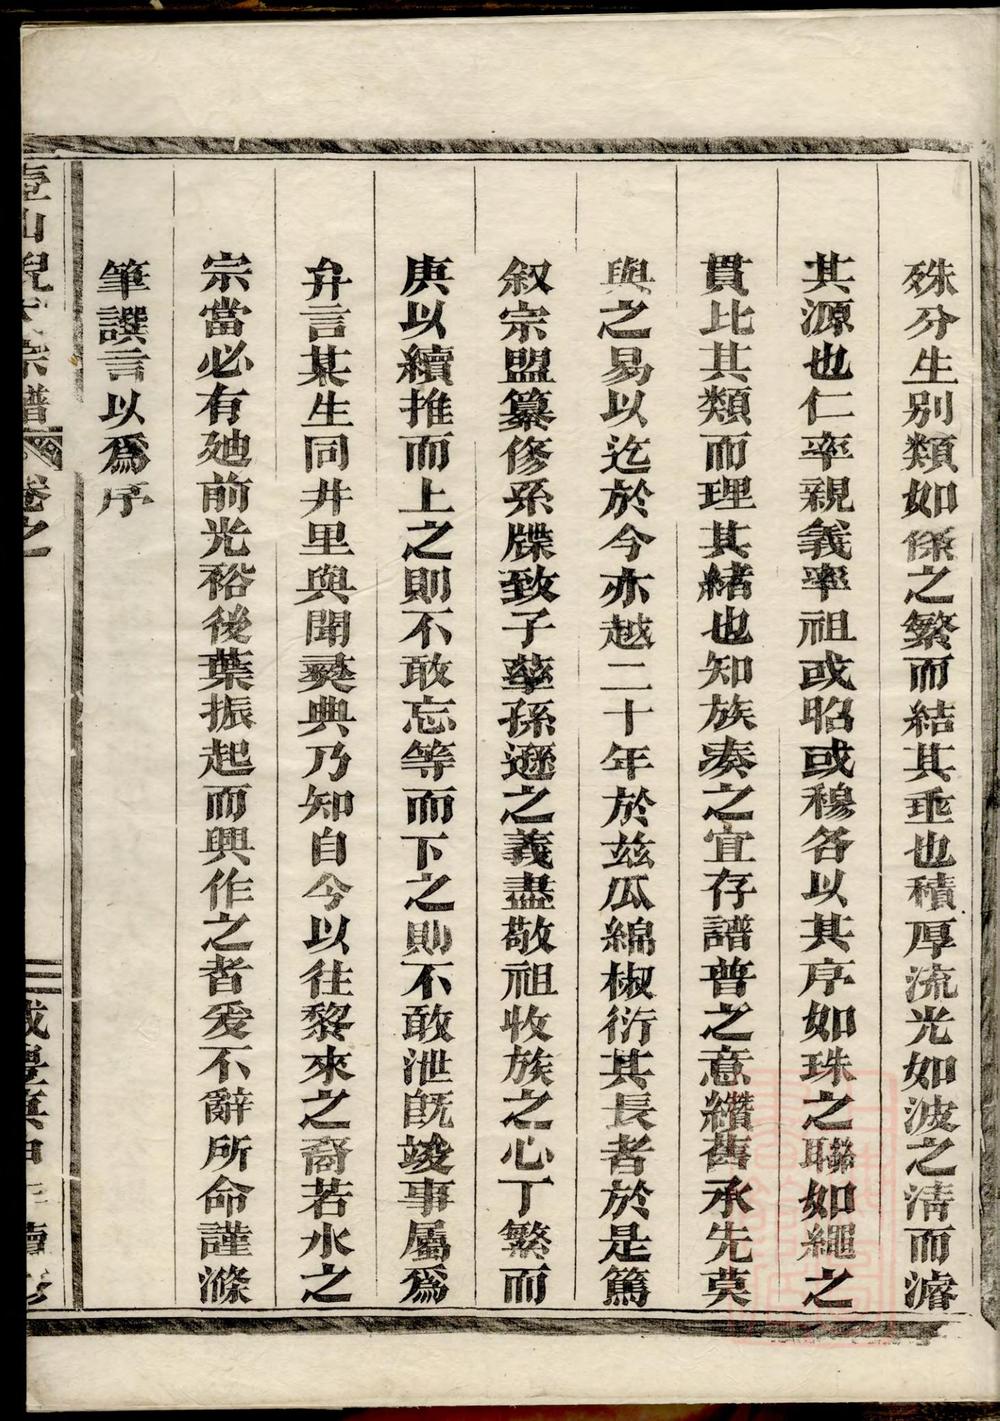 殊分生別類如係之繁而結其埀也積厚流光如波之淸而濬
其源也仁率親義率祖或昭或穆各以其序如珠之聯如繩之
貫比其類而理其緒也知族湊之宜存譜普之意纘舊承先莫
與之易以迄於今亦越二十年於兹瓜綿椒衍其長者於是篤
叙宗盟纂修系牒致子孳孫遜之義盡敬祖收族之心丁繁而
庚以續推而上之則不敢忘等而下之則不敢泄旣竣事屬爲
弁言某生同井里與聞彞典乃知自今以往黎來之裔若水之
宗當必有廸前光裕後葉振起而興作之者爰不辭所命謹滌
筆譔言以爲序
壺山倪氏宗譜 卷之一 咸豐庚申三續修